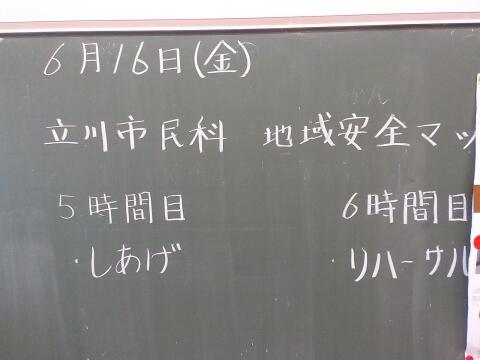 6月16日(金)
立川市民科 地域安全マッ
5時間目 6時間目
・しあげ ・リハーサル